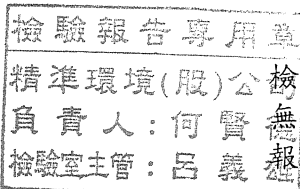 檢驗報告專用章
精準環境(股)公
負責人：何賢
檢驗室主管：呂義雄
檢
無
報